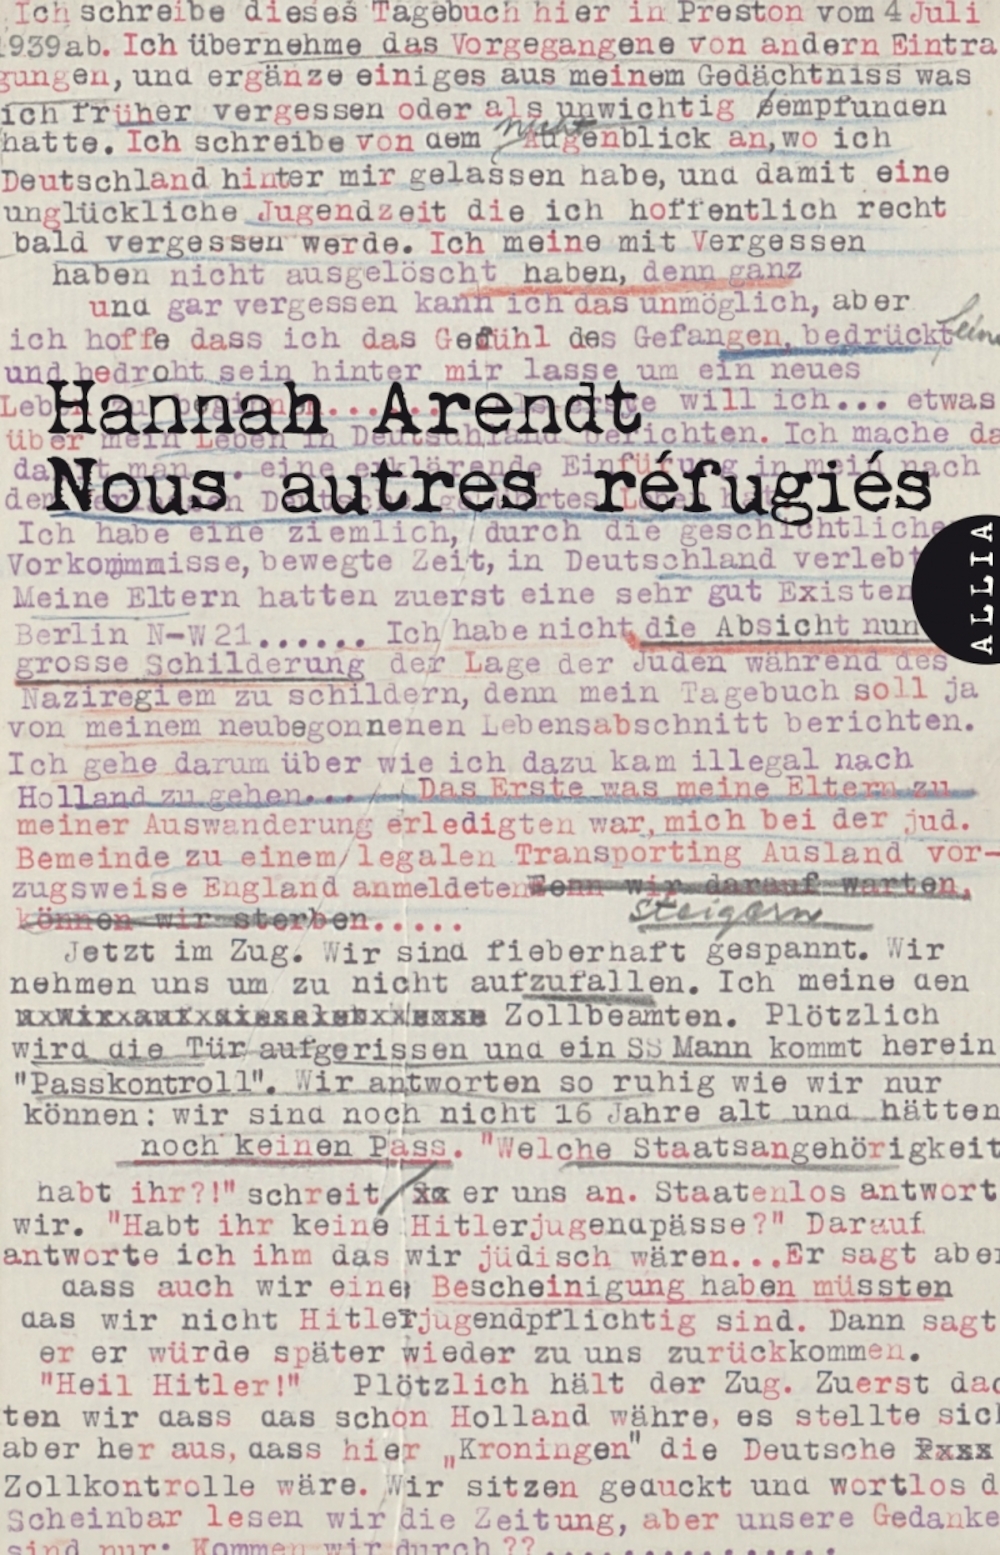 Ich schreibe dieses Tagebuch hier in Preston vom 4 Juli
1939ab. Ich übernehme das Vorgegangene von andern Eintra
gungen, und ergänze einiges aus meinem Gedächtniss was
ich früher vergessen oder als unwichtig empfunden
nicht
hatte. Ich schreibe von dem Augenblick an, wo ich
Deutschland hinter mir gelassen habe, und damit eine
unglückliche Jugendzeit die ich hoffentlich recht
bald vergessen werde. Ich meine mit Vergessen
haben nicht ausgelöscht haben, denn ganz
und gar vergessen kann ich das unmöglich, aber
ich hoffe dass ich das Gefühl des Gefangen, bedrückt
und bedroht sein hinter mir lasse um ein neues
Hannah Arendt
will ich... etwas
über mein Leben in Deutschland berichten. Ich mache da
Nous autres réfugiés
Ich habe eine ziemlich, durch die geschichtliche
Vorkommmisse, bewegte Zeit, in Deutschland verlebt
ALLIA
Meine Eltern hatten zuerst eine sehr gut Existen
Berlin N-W 21...... Ich habe nicht die Absicht nun
grosse Schilderung der Lage der Juden während des
Naziregiem zu schildern, denn mein Tagebuch soll ja
von meinem neubegonnenen Lebensabschnitt berichten.
Ich gehe darum über wie ich dazu kam illegal nach
Holland zu gehen... Das Erste was meine Eltern zu
meiner Auswanderung erledigten war, mich bei der jud.
Bemeinde zu einem legalen Transporting Ausland vor-
zugsweise England anmeldeten Wenn wir darauf warten,
können wir sterben.....
steigern
Jetzt im Zug. Wir sind fieberhaft gespannt. Wir
nehmen uns um zu nicht aufzufallen. Ich meine den
Zollbeamten. Plötzlich
wird die Tür aufgerissen und ein SS Mann kommt herein
"Passkontroll". Wir antworten so ruhig wie wir nur
können: wir sind noch nicht 16 Jahre alt und hätten
noch keinen Pass. "Welche Staatsangehörigkeit
habt ihr?!" schreit xx er uns an. Staatenlos antwort
wir. "Habt ihr keine Hitlerjugendpässe?" Darauf
antworte ich ihm das wir jüdisch wären...Er sagt aber
dass auch wir eine Bescheinigung haben müssten
das wir nicht Hitlerjugendpflichtig sind. Dann sagt
er er würde später wieder zu uns zurückkommen.
"Heil Hitler!" Plötzlich hält der Zug. Zuerst dac
ten wir dass das schon Holland währe, es stellte sich
aber her aus, dass hier „Kroningen" die Deutsche
Zollkontrolle wäre. Wir sitzen geduckt und wortlos d
Scheinbar lesen wir die Zeitung, aber unsere Gedanke
sind nur: Kommen wir durch ??................